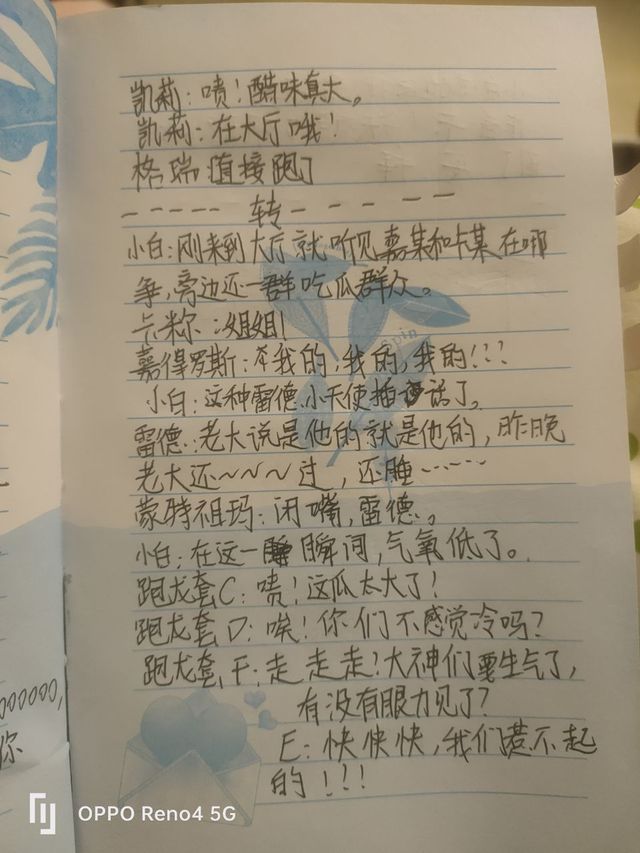 凯莉:啧!醋味真大。
凯莉:在大厅哦!
格瑞:直接跑了
----- 转-- -- --
小白:刚来到大厅就听见嘉某和卡某在哪
争,旁边还一群吃瓜群众。
卡米尔:姐姐!
嘉得罗斯:我的,我的,我的!!?
小白:这种雷德.小天使插话了。
雷德:老大说是他的就是他的,昨晚
老大还~~~~过,还睡------
蒙特祖玛:闭嘴,雷德。
小白:在这一瞬间,气氧低了。
跑龙套C:啧!这瓜太大了!
跑龙套D:唉!你们不感觉冷吗?
跑龙套F:走走走?大神们要生气了,
有没有眼力见了?
E:快快快,我们惹不起
的!!!
000000,
你
Spin
OPPO Reno4 5G